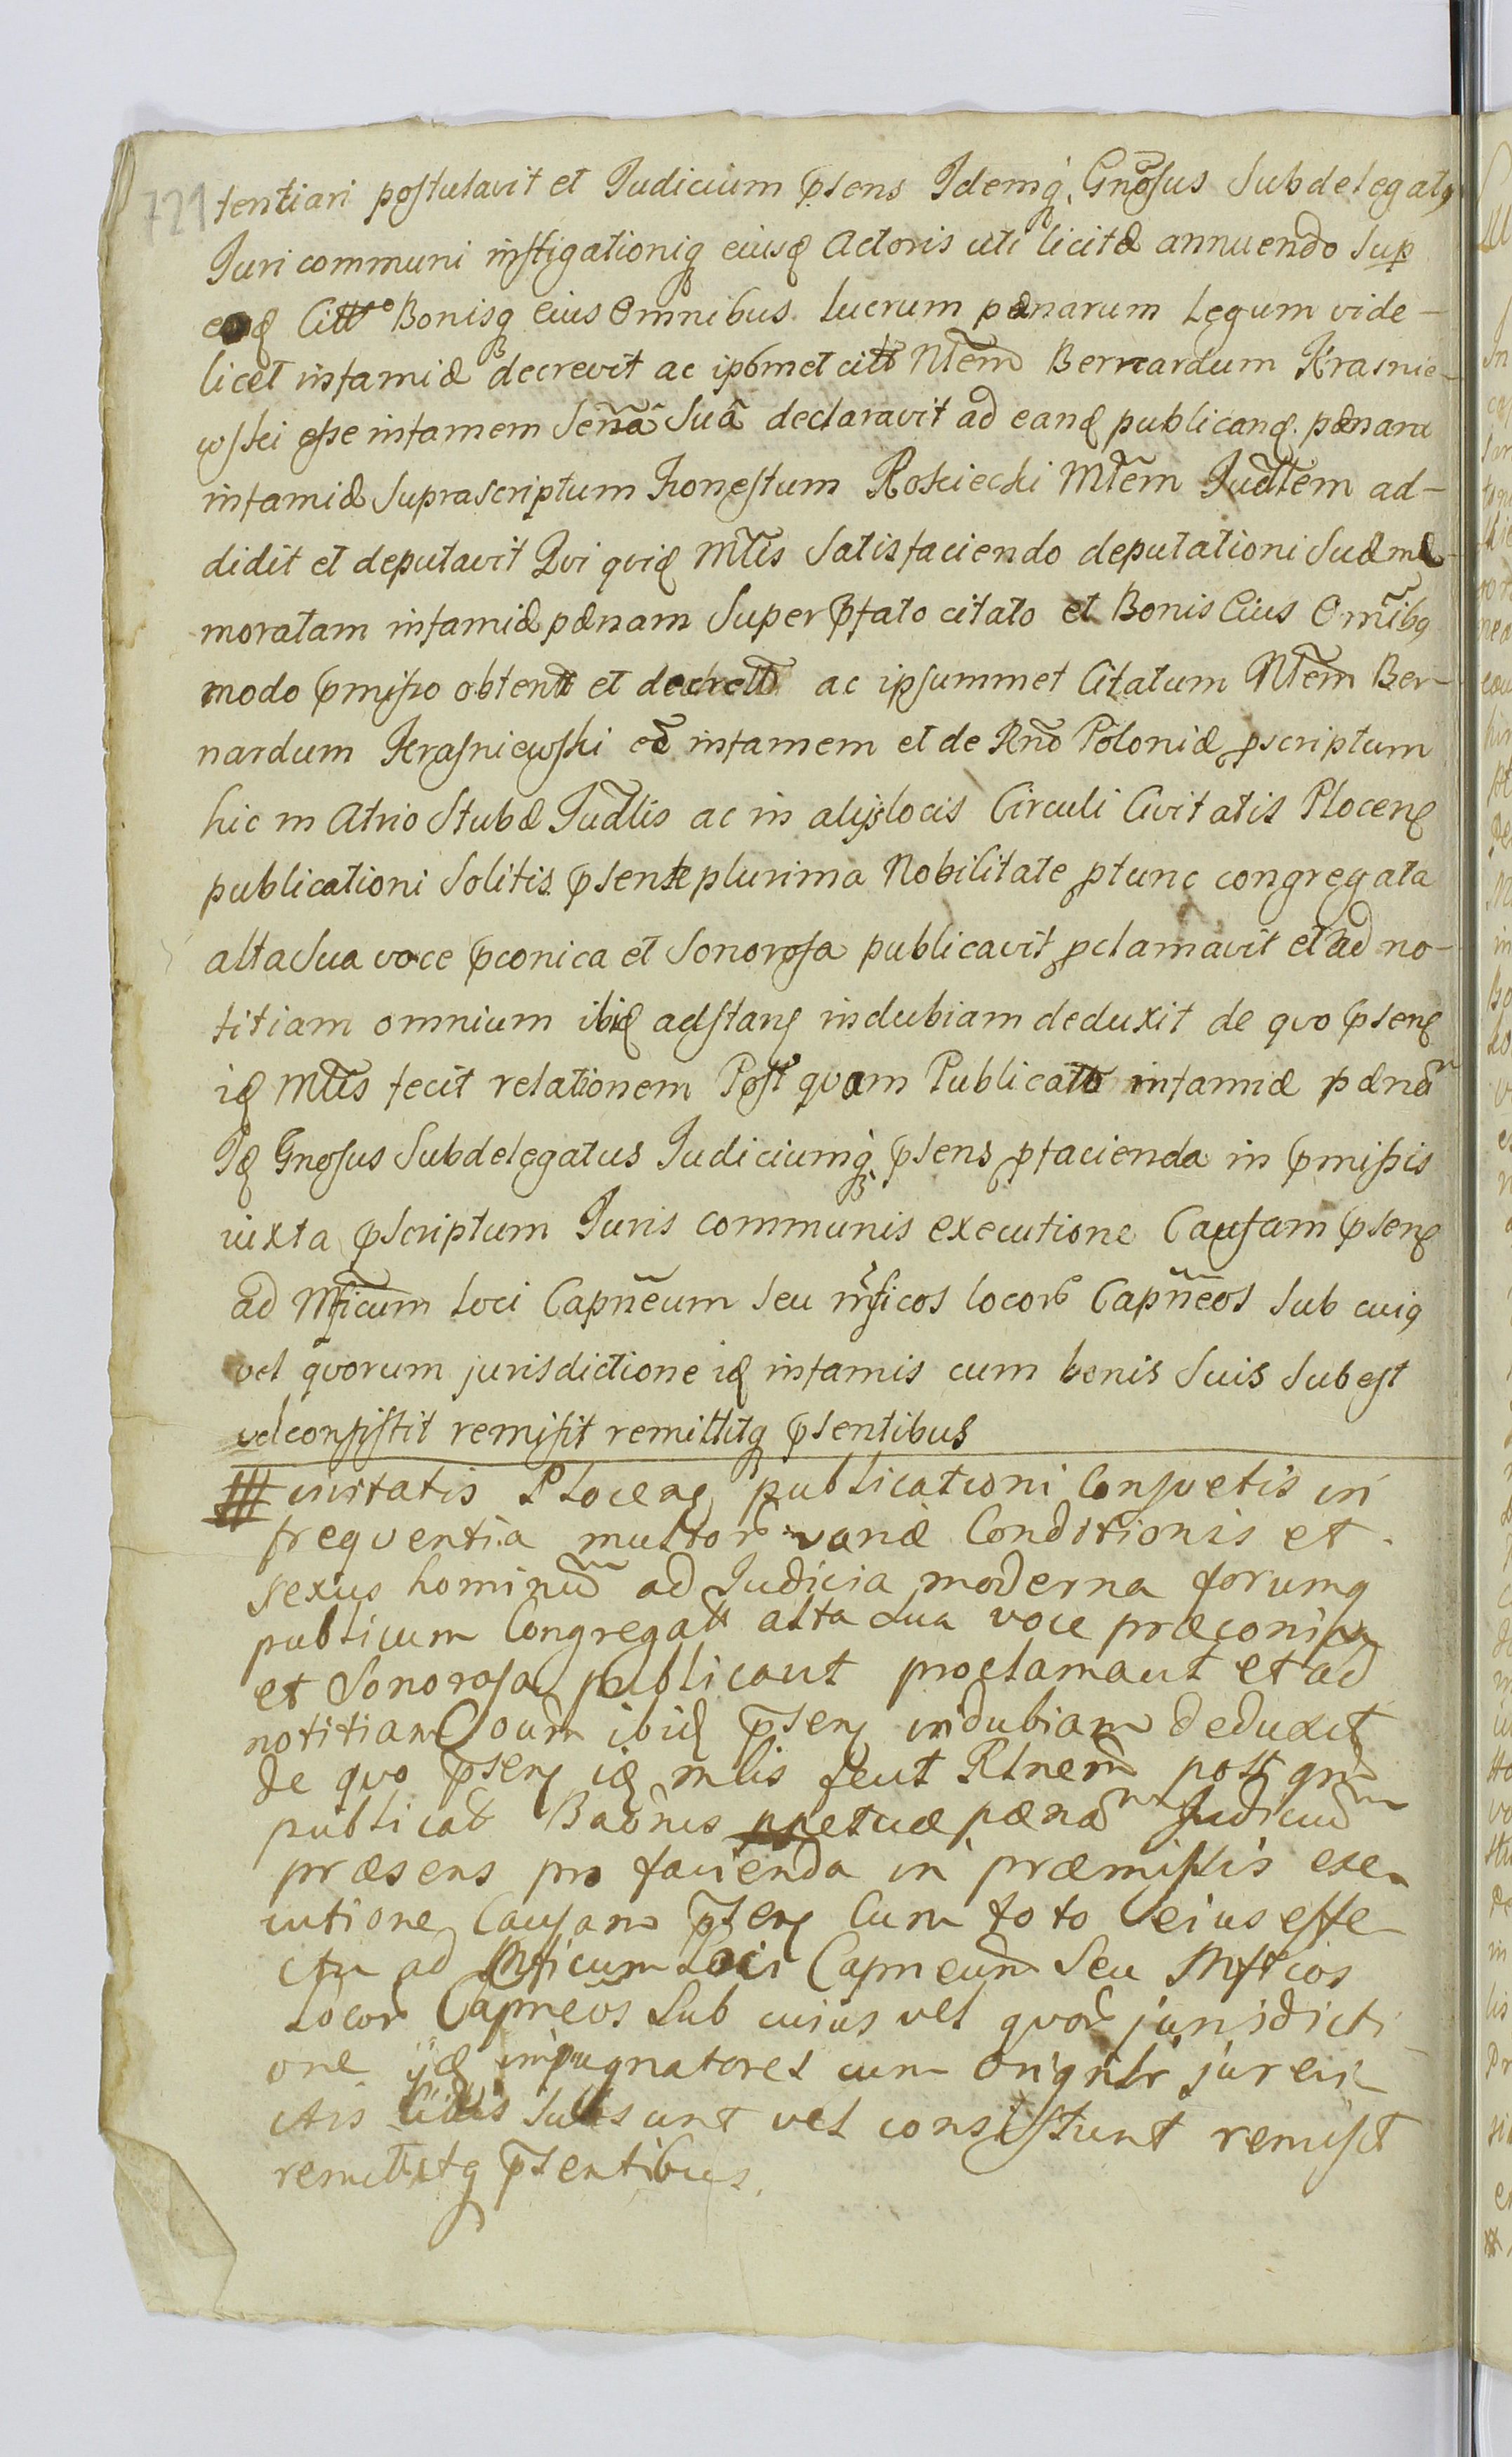 721
tentiari postulavit et Judicium p̄sens Idemq́ Gnōsus Subdelegatꝯ
Juri communi instigationiq́ eiusd Actoris uti licitæ annuendo Sup
eod Citto Bonisq́ eius Omnibus lucrum pænarum Legum vide-
licet infamiæ decrevit ac ipsmet citt Ntēm Bernardum Krasnie-
wski esse infamem Senā̃ Suâ declaravit ad eand publicand pænam
infamiæ Suprascriptum Honestum Rościecki Mtēm Judtēm ad-
didit et deputavit Qvi qvid Mtis Satisfaciendo deputationi Suæ me-
moratam infamiæ pænam Super p̄fato citato et Bonis Eius Omībꝯ
modo p̄misso obtentt et decrett ac ipsummet Citatum Ntēm Ber-
nardum Krasniewski eē infamem et de Rnō Poloniæ p̱scriptum
hic in Atrio Stubæ Judlis ac in alijs locis Circuli Civitatis Plocenꝭ
publicationi Solitis p̄sente plurima Nobilitate p̱tunc congregata
alta Sua voce p̄conica et Sonorosa publicavit p̱clamavit et ad no-
titiam omnium ibid adstanꝭ indubiam deduxit de qvo p̄senꝭ
id Mtis fecit relationem Post qvam Publicatt infamiæ pænā
Id Gnosus Subdelegatus Judiciumq́ p̄sens p̱facienda in p̄missis
iuxta p̄scriptum Juris communis executione Causam p̄senꝭ
ad Mficum Loci Capnēum seu mficos locorꝭ Capnēos Sub cuiꝯ
vel qvorum jurisdictione id infamis cum bonis Suis Subest
vel consistit remisit remittitq́ p̄sentibus
civitatis Plocenꝭ publicationi Consvetis in
freqventia multorꝭ variæ Conditionis et
sexus hominū ad Judicia moderna forumq
publicum Congregatt alta Sua voce præconica
et Sonorosa publicavit proclamavit et ad
notitiam Ooum ibid p̄senꝭ indubiam deduxit
de qvo p̄senꝭ id mlis fecit Rlnem̄ post qm̄
publicatt Baōnis ppetuæ pænā Judiciū
præsens pro facienda in præmissis exe-
cutione Causam p̄senꝭ Cum toto eius effe-
ctu ad Mficum Loci Capneum̄ Seu Mficos
Locorꝭ Capnēos Sub cuius vel qvorꝭ jurisdicti-
one ijd impugnatores cum
subsunt vel consistunt remisit
remittitq p̄sentibus.